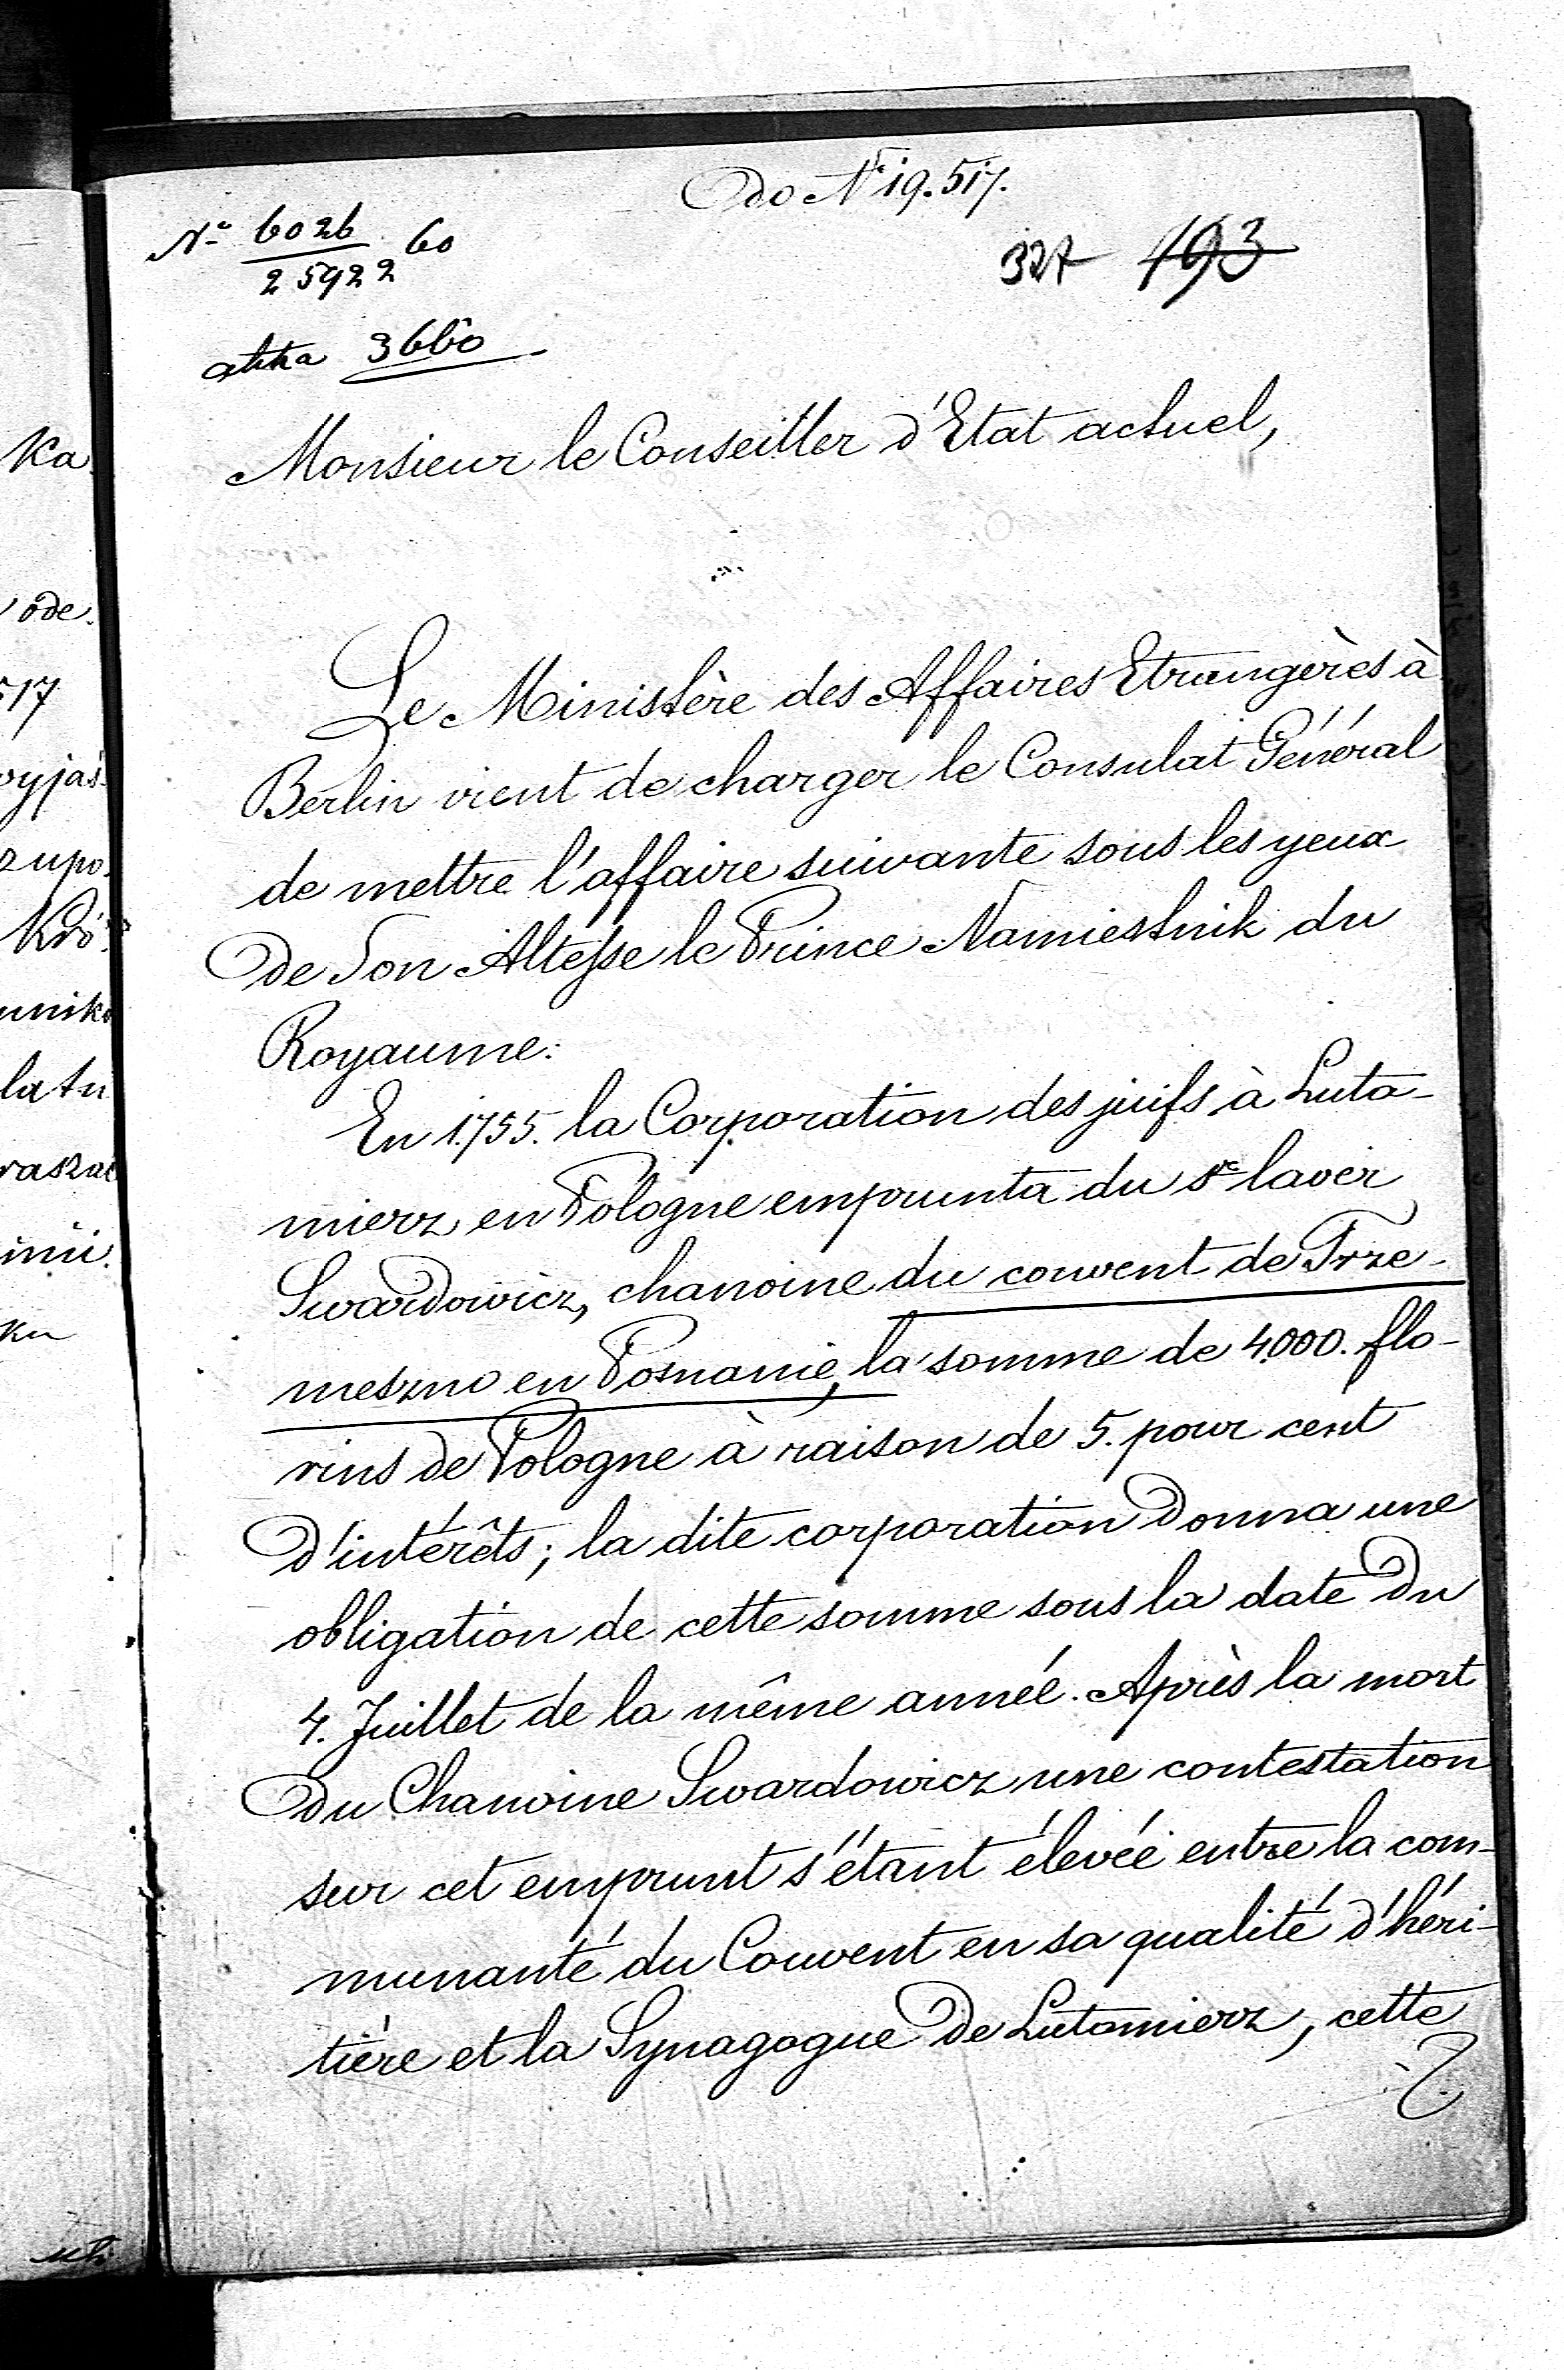 Do N 19.517.
Nº 6026/25922 60
327 193
akta 3660
Monsieur le Conseiller d'Etat actuel,
Le Ministère des Affaires Etrangères à
Berlin vient de charger le Consulat Général
de mettre l'affaire suivante sous les yeux
de Son Altesse le Prince Namiestnik du
Royaume:
En 1755. la Corporation des juifs à Luto-
mierz en Pologne emprunta du Sr laver
Swardowicz, chanoine du couvent de Trze-
meszno en Posnanie, la somme de 4.000. flo-
rins de Pologne à raison de 5. pour cent
d'intérêts; la dite corporation donna une
obligation de cette somme sous la date du
4. Juillet de la même année. Après la mort
du Chanoine Swardowicz une contestation
sur cet emprunt s'étant élevée entre la com-
munanté du Couvent en sa qualité d'héri-
tière et la Synagogue de Lutomierz, cette
ka
ode.
517
wyjaś-
zupo.
Kró
unik
latu
raszac
inii.
ku